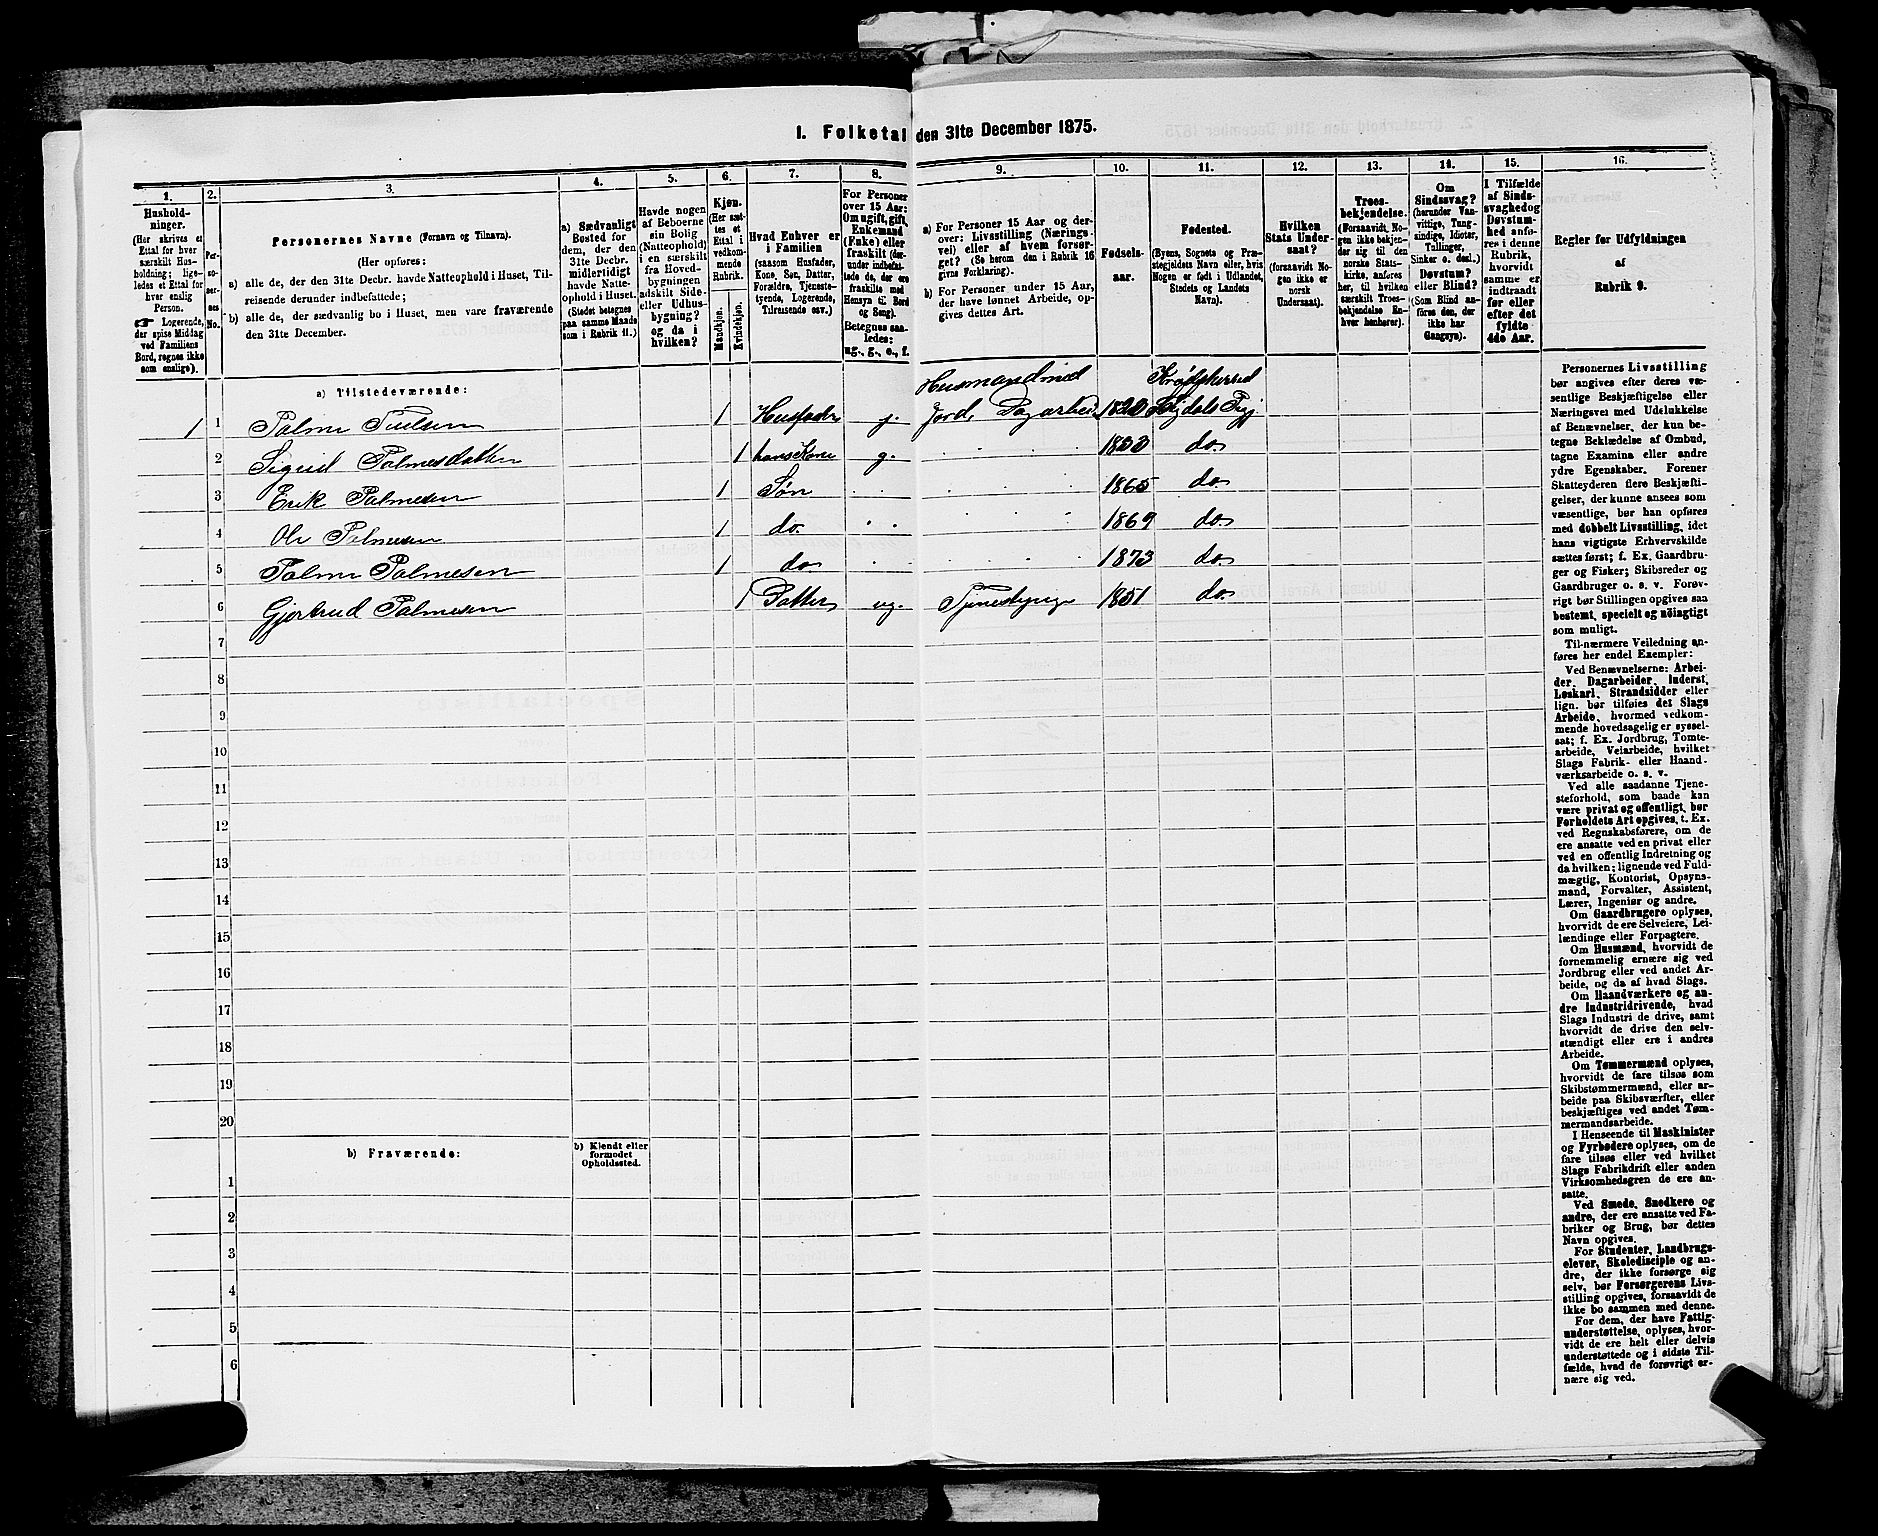 1. Folketal den 31te December 1875.
1.
Hushold-
ninger.
(Her skrives et
Ettal for hver
særskilt Hus-
holdning; lige-
ledes et Ettal for
hver enslig
Person.
☛ Logerende,
der spise Middag
ved Familiens
Bord, regnes ikke
som enslige).
2.
Per-
so-
ner-
nes
No.
3.
Personernes Navne (Fornavn og Tilnavn).
(Her opføres:
a) alle de, der den 31te Decbr. havde Natteophold i Huset, Til-
reisende derunder indbefattede;
b) alle de, der sædvanlig bo i Huset, men vare fraværende
den 31te December.
4.
a) Sædvanligt
Bosted for
dem, der den
31te Decbr.
midlertidigt
havde Natte-
ophold i Huset.
(Stedet betegnes
paa samme Maade
som i Rubrik 11.)
5.
Havde nogen
af Beboerne
ein Bolig
(Natteophold)
i en særskilt
fra Hoved-
bygningen
adskilt Side-
eller Udhus-
bygning?
og da i
hvilken?
6.
Kjøn.
(Her sæt-
tes et
Ettal i
vedkom-
mende
Rubrik.
Mandkjøn.
Kvindekjøn.
7.
Hvad Enhver er
i Familien
(saasom Husfader,
Kone, Søn, Datter,
Forældre, Tjeneste-
tyende, Logerende,
Tilreisende osv.)
8.
For Personer
over 15 Aar:
Om ugift, gift,
Enkemand
(Enke) eller
fraskilt (der-
under indbefat-
tede de, der ere
fraskilte med
Hensyn til Bord
og Seng).
Betegnes saa-
ledes:
ug., g., e., f.
9.
a) For Personer 15 Aar og der-
over: Livsstilling (Nærings-
vei) eller af hvem forsør-
get? (Se herom den i Rubrik 16
givne Forklaring).
b) For Personer under 15 Aar,
der have lønnet Arbeide, op-
gives dettes Art.
10.
Fødsels-
aar.
11.
Fødested.
(Byens, Sognets og Præ-
stegjeldets Navn eller, hvis
Nogen er født i Udlandet,
Stedets og Landets
Navn).
12.
Hvilken
Stats Under-
saat?
(forsaavidt No-
gen ikke er
norsk
Undersaat).
13.
Troes-
bekjendelse.
(Forsaavidt, No-
gen ikke bekjen-
der sig til den
norske Stats-
kirke, anføres
her, til hvilken
særskilt Troes-
bekjendelse En-
hver henhører).
14.
Om
Sindssvag?
(herunder Van-
vittige, Tung-
sindige, Idioter,
Tullinger,
Sinker o. desl.)
Døvstum?
eller Blind?
(Som Blind an-
føres den, der
ikke har
Gangsyn).
15.
I Tilfælde
af Sinds-
svaghed og
Døvstum-
hed anfø-
res i denne
Rubrik,
hvorvidt
samme er
indtraadt
før eller
efter det
fyldte
4de Aar.
16.
Regler for Udfyldningen
af
Rubrik 9.
a) Tilstedeværende:
Husmand med Krødsherred
1 1 Palme Tulsen 1 Husfader g. Jord, Dagarbei 1820 Sigdals Prgj
2 Sigrid Palmesdatter 1 hans Kone g. 1833 do.
3 Erik Palmesen 1 Søn 1865 do.
4 Ole Palmesen 1 do. 1869 do.
5 Palme Palmesen 1 do 1873 do.
6 Gjertrud Palmesen 1 Datter ug. Tjenestepige 1851 do.
7
8
9
10
11
12
13
14
15
16
17
18
19
20
b) Fraværende:
b) Kjendt eller
formodet
Opholdssted.
1
2
3
4
5
6
Personernes Livsstilling
bør angives efter deres væ-
sentlige Beskjæftigelse eller
Næringsvei med Udelukkelse
af Benævnelser, der kun be-
tegne Beklædelse af Ombud,
tagne Examina eller andre
ydre Egenskaber. Forener
Skatteyderen flere Beskjæfti-
gelser, der kunne ansees som
væsentlige, bør han opføres
med dobbelt Livsstilling, idet
hans vigtigste Erhvervskilde
sættes først; f. Ex. Gaardbru-
ger og Fisker; Skibsreder og
Gaardbruger o. s. v. Forøv-
rigt bør Stillingen opgives saa
bestemt, specielt og nøiagtigt
som muligt.
Til nærmere Veiledning an-
føres her endel Exempler:
Ved Benævnelserne: Arbei-
der, Dagarbeider, Inderst,
Løskarl, Strandsidder eller
lign. bør tilføies det Slags
Arbeide, hvormed vedkom-
mende hovedsagelig er syssel-
sat; f. Ex. Jordbrug, Tomte-
arbeide, Veiarbeide, hvilket
Slags Fabrik- eller Haand-
værksarbeide o. s. v.
Ved alle saadanne Tjene-
steforhold, som baade kan
være privat og offentligt, bør
Forholdets Art opgives, t. Ex.
ved Regnskabsførere, om de
ere ansatte ved en privat eller
ved en offentlig Indretning og
da hvilken; lignende ved Fuld-
mægtig, Kontorist, Opsyns-
mand, Forvalter, Assistent,
Lærer, Ingeniør og andre.
Om Gaardbrugere oplyses,
hvorvidt de ere Selveiere, Lei-
lændinge eller Forpagtere.
Om Husmænd, hvorvidt de
fornemmelig ernære sig ved
Jordbrug eller ved andet Ar-
beide, og da af hvad Slags.
Om Haandværkere og an-
dre Industridrivende, hvad
Slags Industri de drive, samt
hvorvidt de drive den selv-
stændigt eller ere i andres
Arbeide.
Om Tømmermænd oplyses,
hvorvidt de fare tilsøs som
Skibstømmermænd, eller ar-
beide paa Skibsværfter, eller
beskjæftiges ved andet Tøm-
mermandsarbeide.
I Henseende til Maskinister
og Fyrbødere oplyses, om de
fare tilsøs eller ved hvilket
Slags Fabrikdrift eller anden
Virksomhedsgren de ere an-
satte.
Ved Smede, Snedkere og
andre, der ere ansatte ved Fa-
briker og Brug, bør dettes
Navn opgives.
For Studenter, Landbrugs-
elever, Skoledisciple og an-
dre, der ikke forsørge sig
selv, bør Forsørgerens Livs-
stilling opgives, forsaavidt de
ikke bo sammen med denne.
For dem, der have Fattig-
understøttelse, oplyses, hvor-
vidt de ere helt eller delvis
understøttede og i sidste Til-
fælde, hvad de forøvrigt er-
nære sig ved.